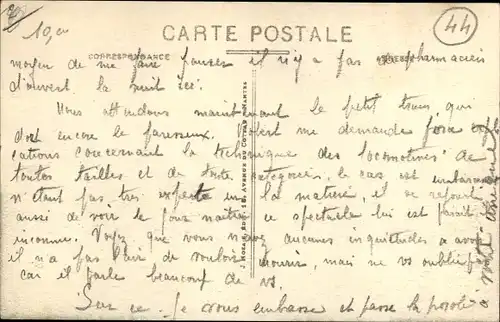 10,00
CARTE POSTALE
44
CORRESPONDANCE
moyen de me faire il n'y a pas pharmacien
d'ouvert la nuit ici.
Nous attendons maintenant le petit train qui
doit encore le paresseux. me demande
cations concernant la technique des locomotives de
toutes tailles et de toute catégories, le cas est embarassant
n'étant pas très experte en la matière, et se refuse
aussi de voir le jour naître ce spectacle lui est parait-il
inconnu. Voyez que vous n'avez aucunes inquiétudes a avoir
il n'a pas l'air de vouloir mourir, mais ne vs oublie pas
car il parle beaucoup de vs.
Sur ce, je vous embrasse et passe la parole
a votre
NANTES